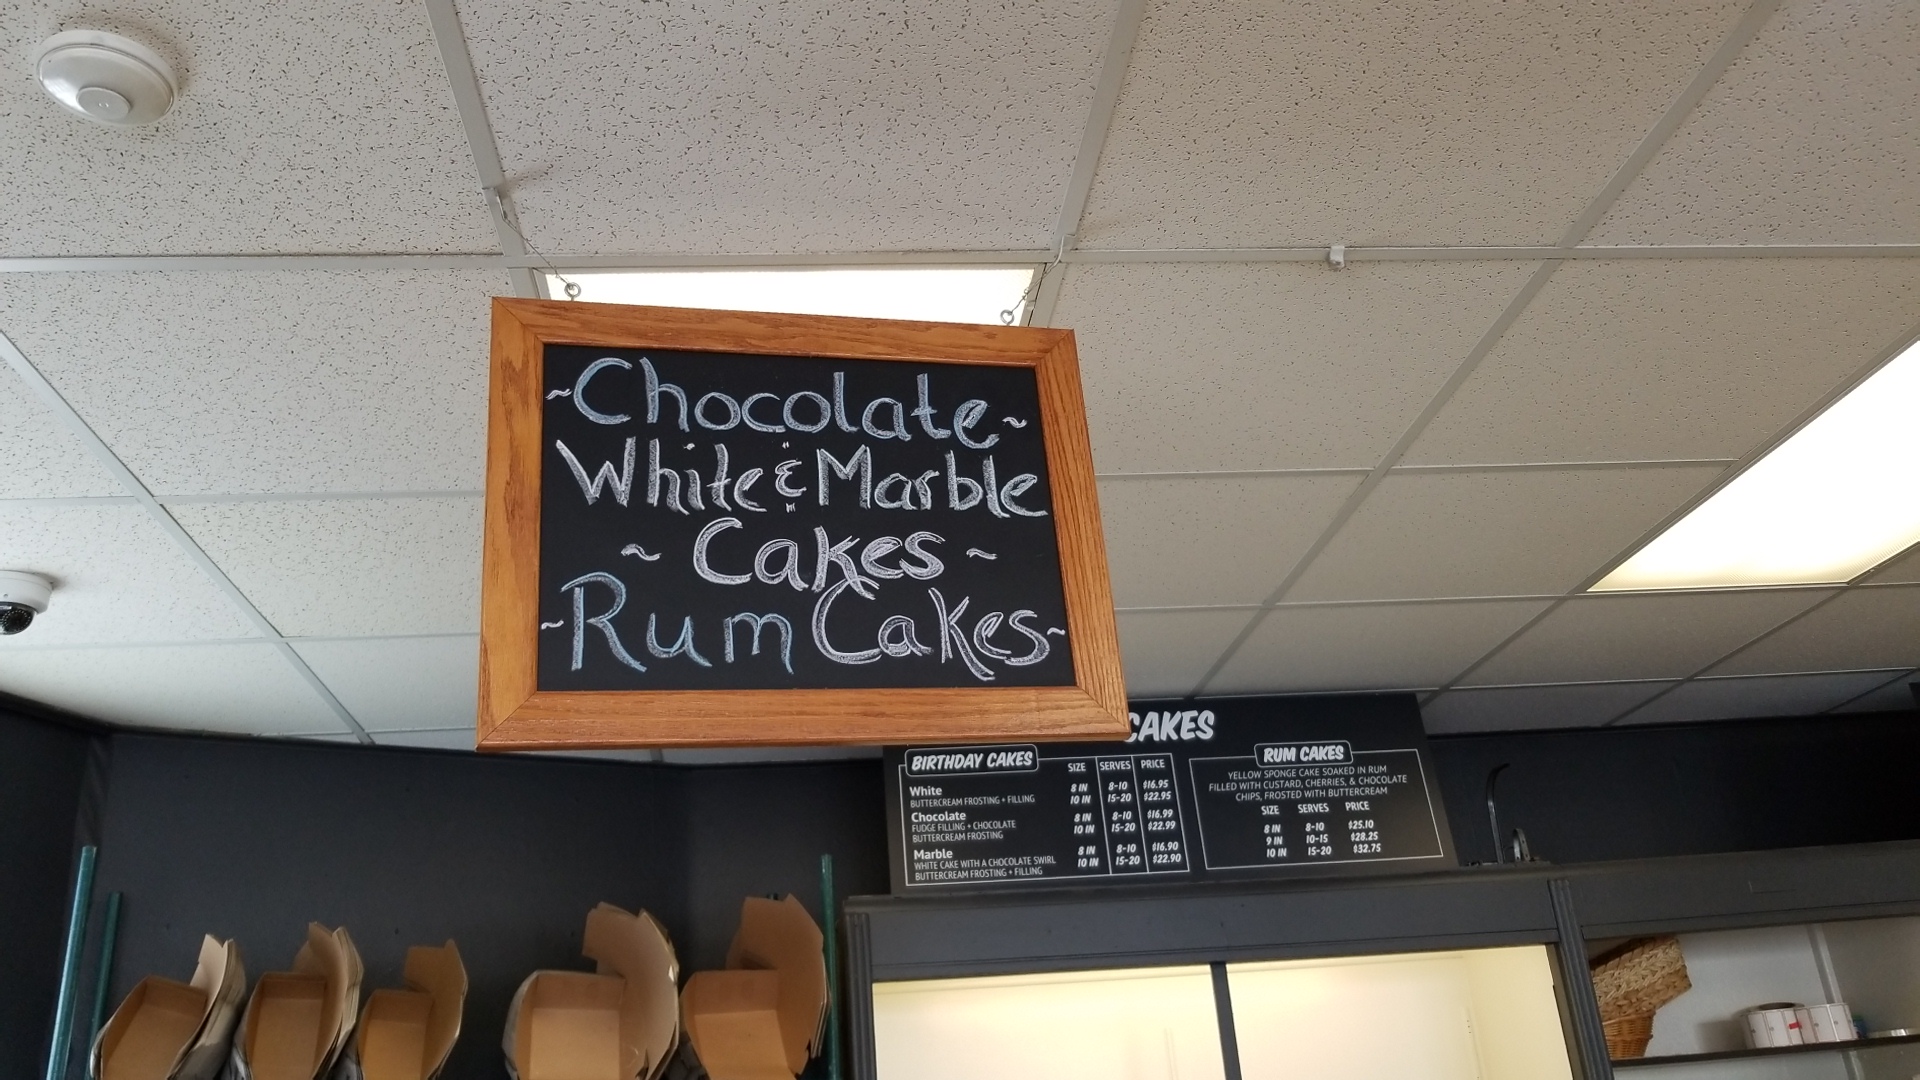 ~Chocolate~
White & Marble
~ Cakes ~
~Rum Cakes~
CAKES
BIRTHDAY CAKES SIZE SERVES PRICE
White 8 IN 8-10 $16.95
BUTTERCREAM FROSTING + FILLING 10 IN 15-20 $22.95
Chocolate 8 IN 8-10 $16.99
FUDGE FILLING + CHOCOLATE 10 IN 15-20 $22.99
BUTTERCREAM FROSTING
Marble 8 IN 8-10 $16.90
WHITE CAKE WITH A CHOCOLATE SWIRL 10 IN 15-20 $22.90
BUTTERCREAM FROSTING + FILLING
RUM CAKES
YELLOW SPONGE CAKE SOAKED IN RUM
FILLED WITH CUSTARD, CHERRIES, & CHOCOLATE
CHIPS, FROSTED WITH BUTTERCREAM
SIZE SERVES PRICE
8 IN 8-10 $25.10
9 IN 10-15 $28.25
10 IN 15-20 $32.75